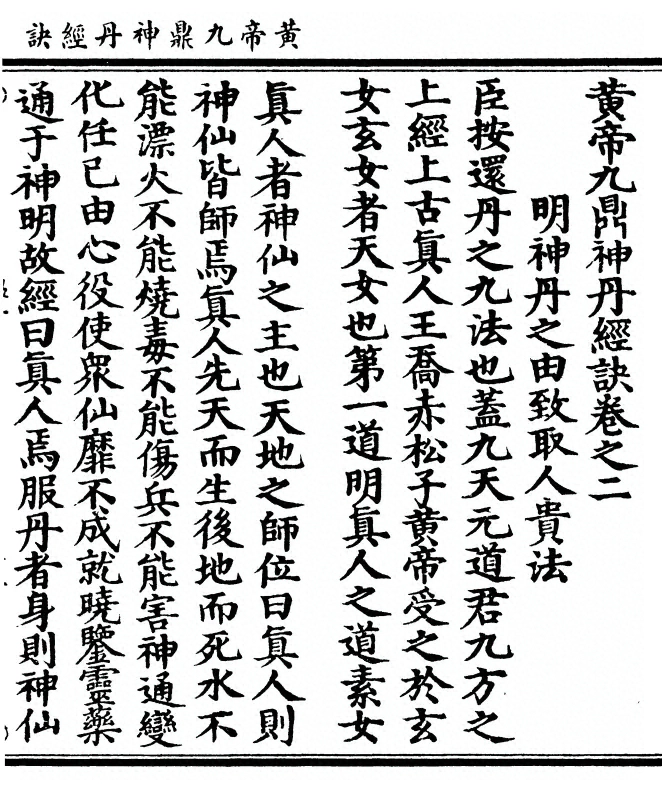 黃帝九鼎神丹經訣
黃帝九鼎神丹經訣卷之二
明神丹之由致取人貴法
臣按還丹之九法也蓋九天元道君九方之
上經上古眞人王喬赤松子黃帝受之於玄
女玄女者天女也第一道明眞人之道素女
眞人者神仙之主也天地之師位曰眞人則
神仙皆師焉眞人先天而生後地而死水不
能漂火不能燒毒不能傷兵不能害神通變
化任已由心役使眾仙靡不成就曉鑒靈藥
通于神明故經曰眞人焉服丹者身則神仙